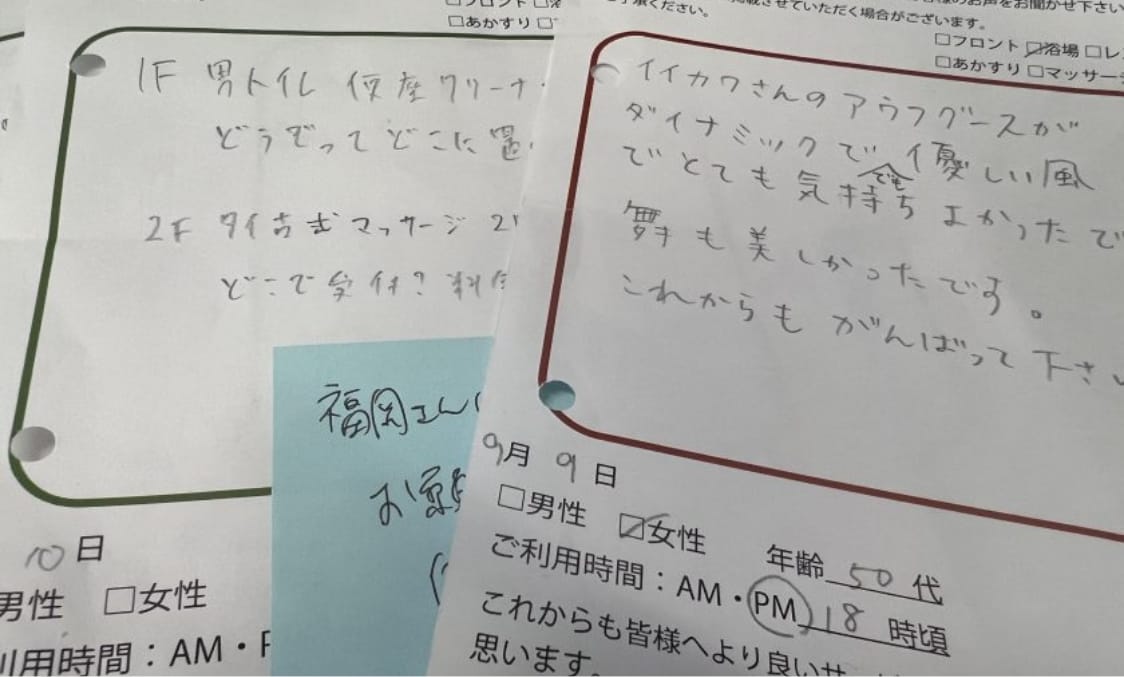 □フロント □浴
□あかすり □
1F 男トイレ 便座クリーナ
どうやって どこに置
2F タイ古式マッサージ 2
どこで受付? 料金
10日
男性 □女性
利用時間：AM・P
福岡さん
お願
掲載させていただく場合がございます。
お声をお聞かせ下さい
ください。
□フロント ☑浴場 □レ
□あかすり □マッサージ
イイカワさんのアウフグースが
ダイナミックで 優しい風
でとても気持ちよかったで
でも
舞も美しかったです。
これからも がんばって下さい
9月 9日
□男性 ☑女性 年齢 50 代
ご利用時間：AM・PM 18 時頃
これからも皆様へより良いサ
思います。